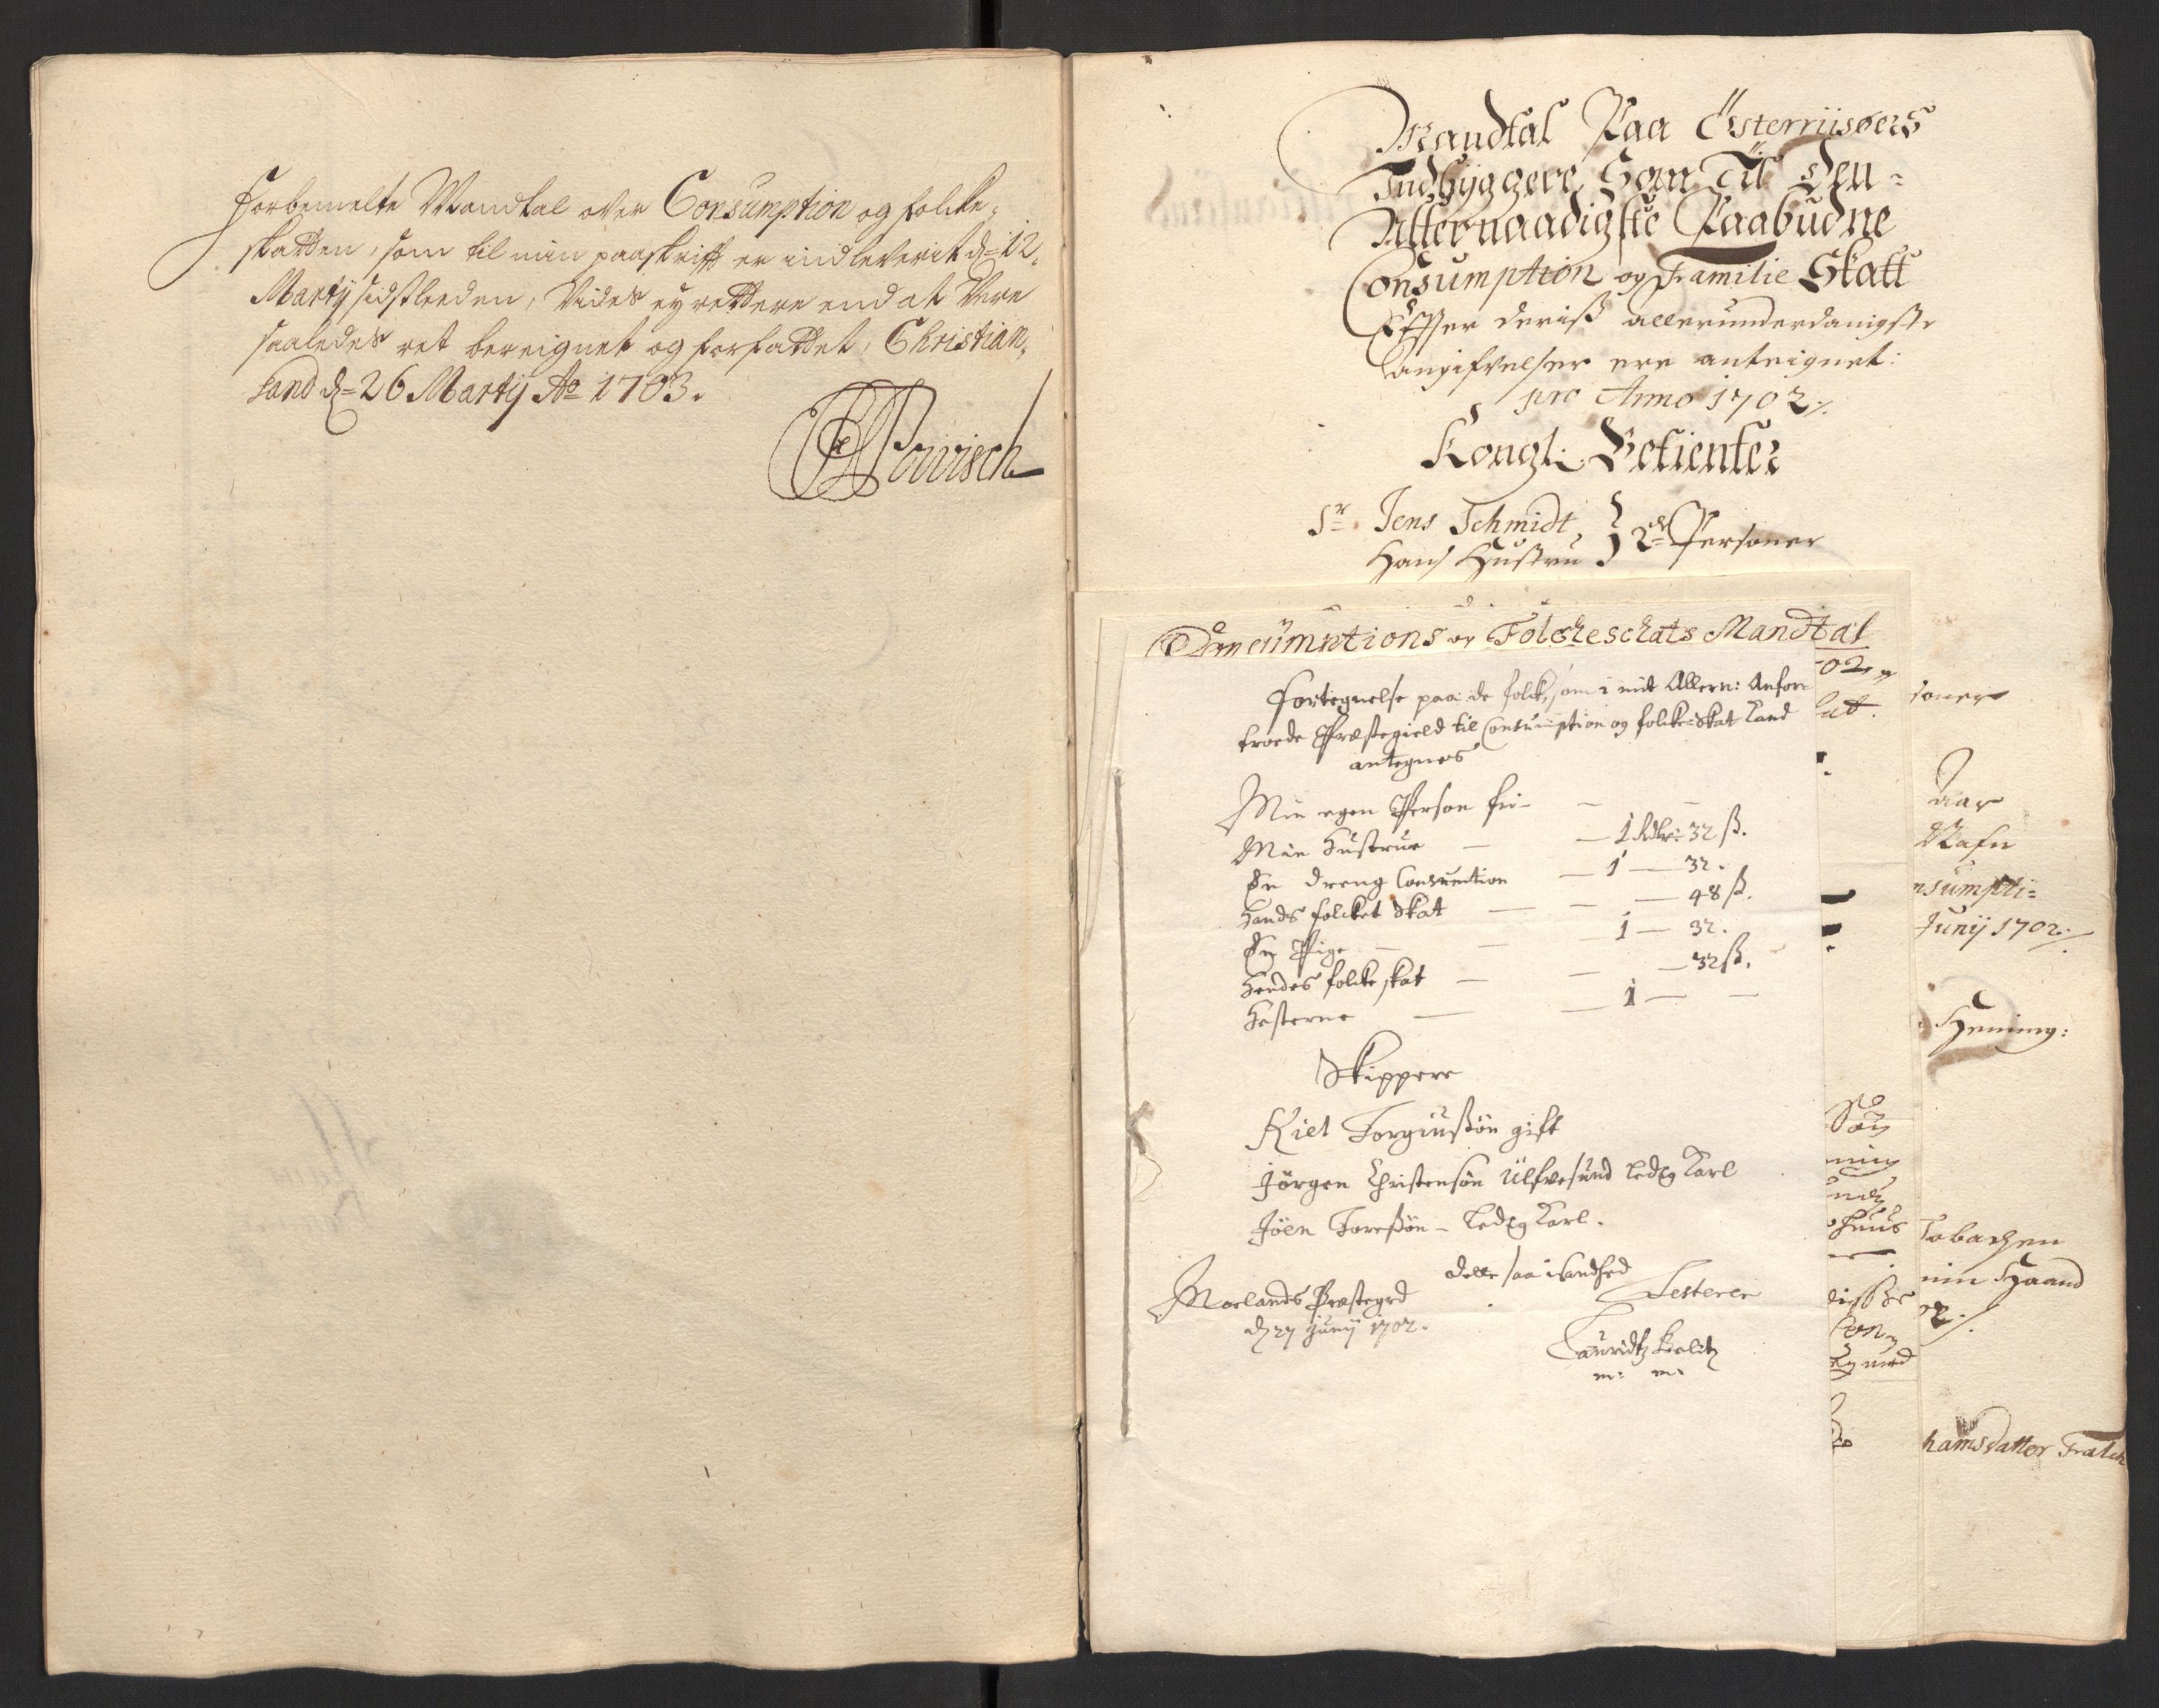 Forbemelte Mandtal over Consumption og folcke-
skatten, som til min paaskrifft er indleverit d= 12.
Martij sidstleeden, Vides ey rettere end at Være
saaledes ret bereignet og forfattet, Christian,
sand d= 26 Martij Ao 1703.
Powisch
Mandtal Paa Österriisöers
Indbyggere Som Til Den
Allernaadigste Paabudne
Consumption og Familie Skatt
Effter deriß allerunderdanigste
angifvelser ere anteignet:
pro Anno 1702 ./.
Kongl: Betienter
Sr Jens Schmidt,
Hans Hustru } 2de Personer
Consumptions og Folcheschats Mandtal
02
Fortegnelse paa de folck, som i mit Allern: Anfor-
troede Præstegield til Consumption og folcke-Skat kand
antegnes
Min egen Person fri -
Min Hustrue - 1 Rdlr: 32 ß.
En dreng Consumtion - 1 - 32.
Hands folcket Skat - 48 ß.
En Pige - 1 - 32.
Hendes folcke skat - 32 ß.
Hesterne - 1 -
Skippere
Kiel Torgiusßön gift
Jörgen Christensön Ülfvesund ledig Karl
Jöen Toreßön - ledig Karl.
dette saa i Sandhed
Testerer
Moelands Præstegrd
d 27 Junij 1702.
Lauridtz
m: m.
soner
aar
nsumpti=
Junij 1702 ./.
Hening:
Söy
huus
Tobachen
min Haand
med
hamsdatter Tralch